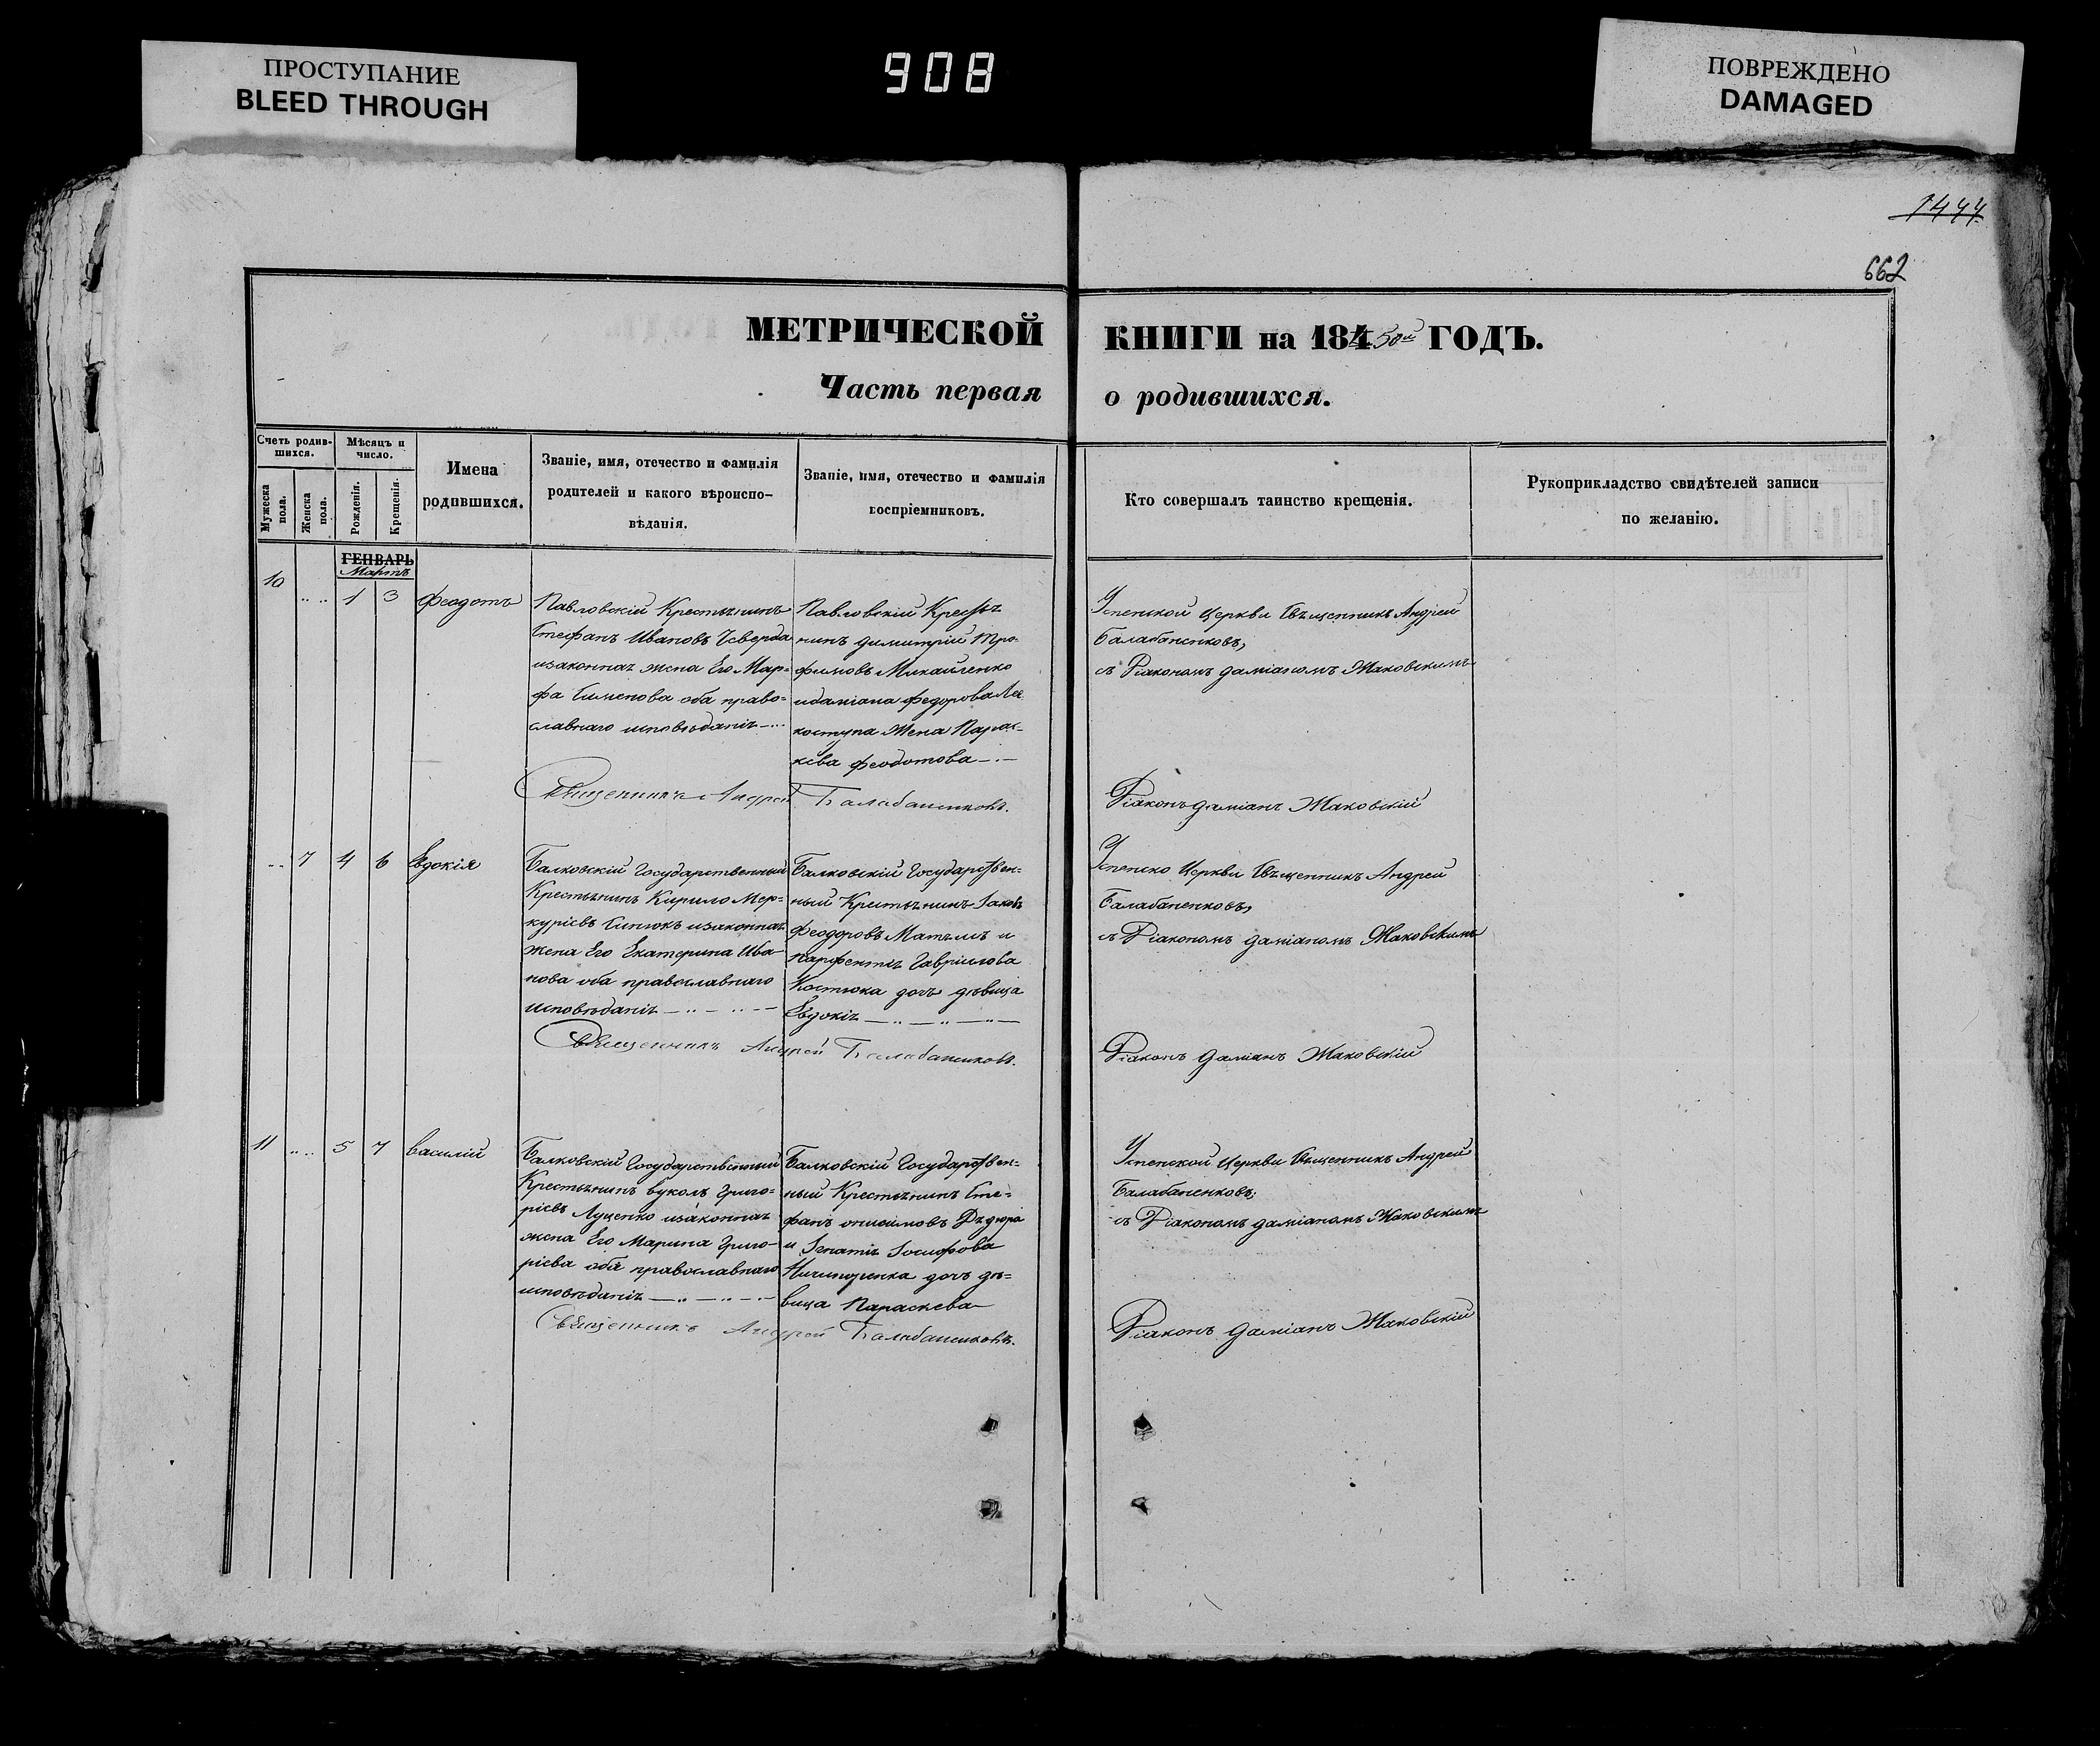 ПРОСТУПАНИЕ
BLEED THROUGH
908
ПОВРЕЖДЕНО
DAMAGED
1444
662
МЕТРИЧЕСКОЙ КНИГИ на 184 50й ГОДЪ.
Часть первая о родившихся.
Счетъ родив-
шихся.
Мужеска пола.
Женска пола.
Мѣсяцъ и
число.
Рожденія.
Крещенія.
Имена
родившихся.
Званіе, имя, отечество и фамилія
родителей и какого вѣроиспо-
вѣданія.
Званіе, имя, отечество и фамилія
воспріемниковъ.
Кто совершалъ таинство крещенія.
Рукоприкладство свидѣтелей записи
по желанію.
ГЕНВАРЬ
Мартъ
10 1 3 Феодотъ
Павловскій Крестьянинъ
Стефанъ Ивановъ Чверда
изаконная жена Его Мар=
фа Симєнова оба право=
славнаго исповѣданія
Павловскій Кресть
нинъ Димитрій Тро=
фимовъ Михайленко
идаміана Федорова
коступа Жена Парас=
кева Феодотова
Успенской Церкви Священникъ Андрей
Балабаненковъ,
съ Діакономъ Даміаномъ Жаковскимъ
Священникъ Андрей Балабаненковъ.
Діаконъ Даміанъ Жаковскій
7 4 6 Евдокія
Балковскій Государственный
Крестьянинъ Кирило Мер=
куріевъ Синюкъ изаконная
жена Его Екатерина Ива
нова оба православнаго
исповѣданія
Балковскій Государствен=
ный Крестьянинъ Іаковъ
Феодоровъ и
Парфентія Гавріилова
Костюка дочь дѣвица
Евдокія
Успенско Церкви Священникъ Андрей
Балабаненковъ,
съ Діакономъ Даміаномъ Жаковскимъ
Священникъ Андрей Балабаненковъ.
Діаконъ Даміанъ Жаковскій
11 5 7 Василій
Балковскій Государственный
Крестьянинъ Вуколъ Григо=
ріевъ Луценко изаконная
жена Его Марина Григо=
ріева оба православнаго
исповѣданія
Балковскій Государствен=
ный Крестьянинъ Сте=
фанъ Онисимовъ Дядюра
и Игнатія Іосифова
Ничипоренка дочь дѣ=
вица Параскева
Успенской Церкви Священникъ Андрей
Балабаненковъ,
съ Діакономъ Даміаномъ Жаковскимъ
Священникъ Андрей Балабаненковъ.
Діаконъ Даміанъ Жаковскій